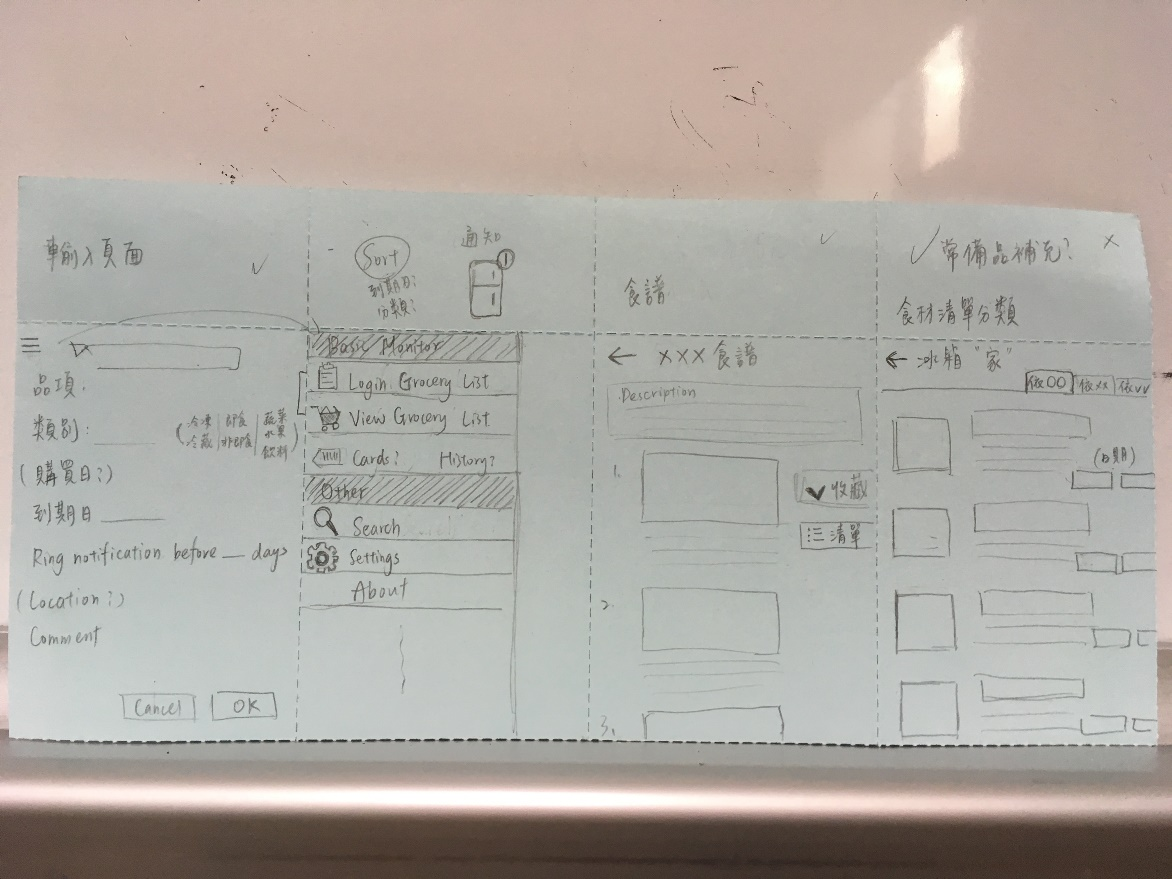 輸入頁面
品項:
類別: (冷凍 | 即食 | 蔬菜
冷藏 | 非即食 | 水果
飲料)
(購買日?)
到期日
Ring notification before __ days
(Location?)
Comment
Cancel OK
Sort
到期日?
分類?
通知
Basic Monitor
Login Grocery List
View Grocery List
Cards? History?
Other
Search
Settings
About
食譜
← XXX 食譜
Description
1.
收藏
清單
2.
3.
✓ 常備品補充? ×
食材清單分類
← 冰箱 "家"
依OO 依XX 依VV
(日期)